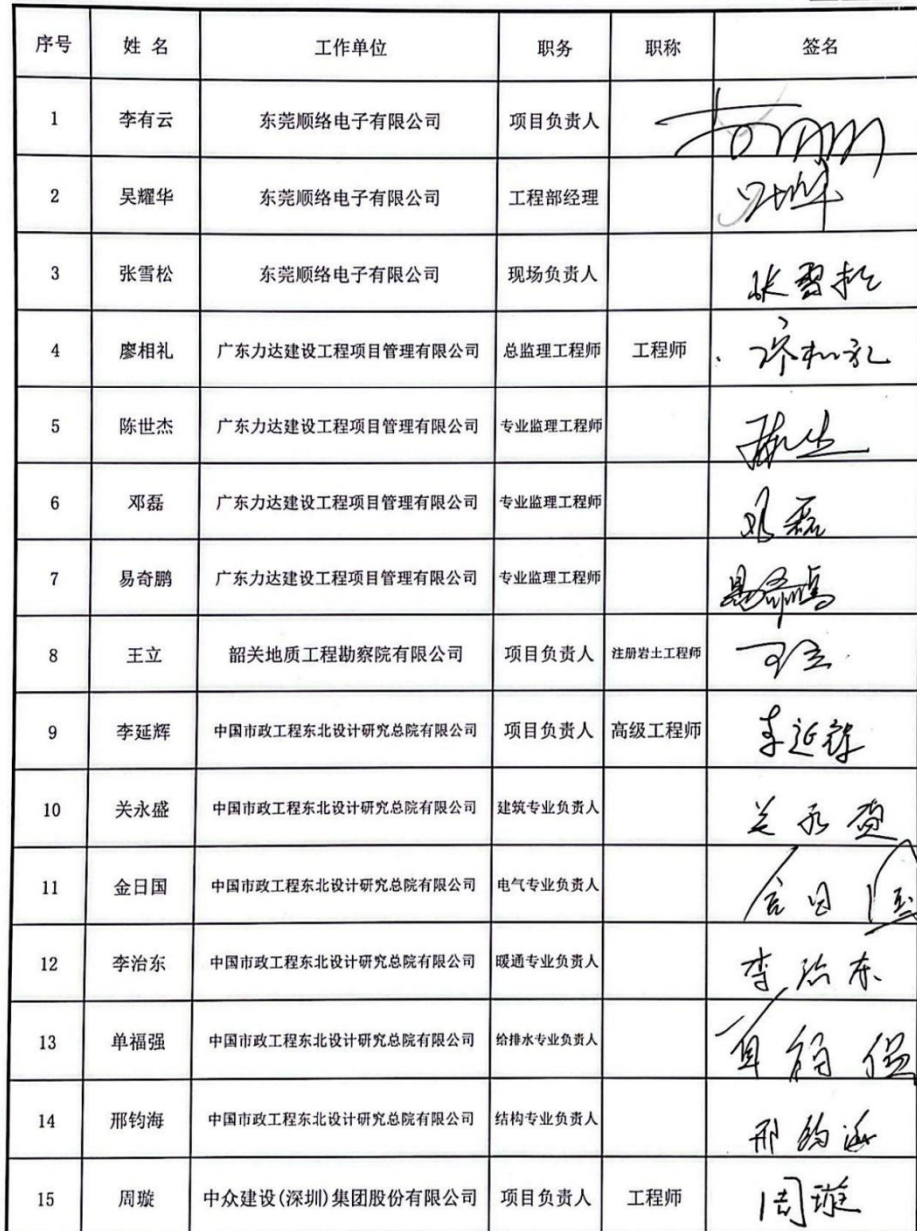 序号 姓 名 工作单位 职务 职称 签名
1 李有云 东莞顺络电子有限公司 项目负责人
2 吴耀华 东莞顺络电子有限公司 工程部经理
3 张雪松 东莞顺络电子有限公司 现场负责人 张雪松
4 廖相礼 广东力达建设工程项目管理有限公司 总监理工程师 工程师
5 陈世杰 广东力达建设工程项目管理有限公司 专业监理工程师
6 邓磊 广东力达建设工程项目管理有限公司 专业监理工程师 邓磊
7 易奇鹏 广东力达建设工程项目管理有限公司 专业监理工程师 易奇鹏
8 王立 韶关地质工程勘察院有限公司 项目负责人 注册岩土工程师 王立
9 李延辉 中国市政工程东北设计研究总院有限公司 项目负责人 高级工程师 李延辉
10 关永盛 中国市政工程东北设计研究总院有限公司 建筑专业负责人 关永盛
11 金日国 中国市政工程东北设计研究总院有限公司 电气专业负责人 金日国
12 李治东 中国市政工程东北设计研究总院有限公司 暖通专业负责人 李治东
13 单福强 中国市政工程东北设计研究总院有限公司 给排水专业负责人 单福强
14 邢钧海 中国市政工程东北设计研究总院有限公司 结构专业负责人 邢钧海
15 周璇 中众建设(深圳)集团股份有限公司 项目负责人 工程师 周璇